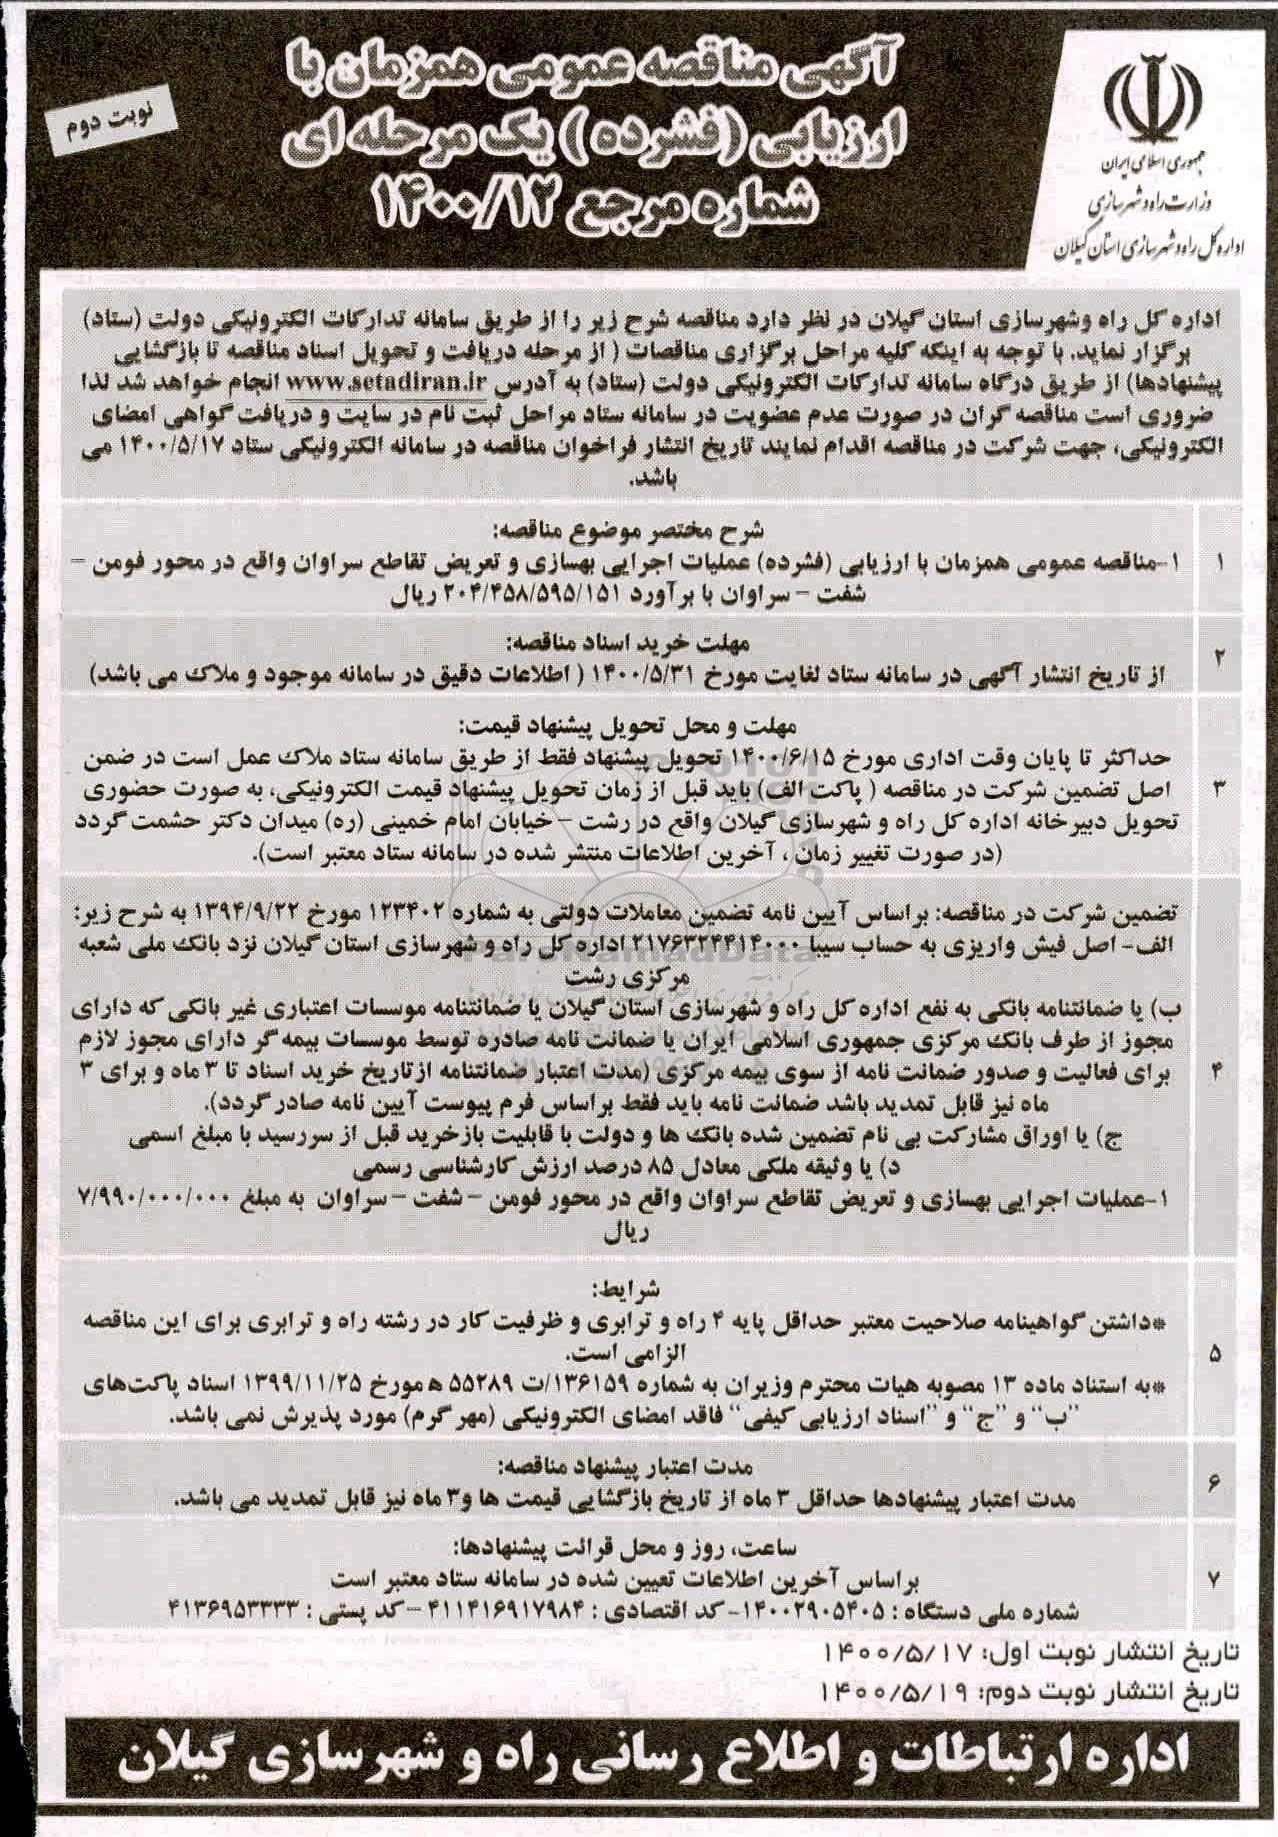 آگهی مناقصه عمومی همزمان با
ارزیابی (فشرده) یک مرحله ای
شماره مرجع ۱۴۰۰/۱۲
نوبت دوم
جمهوری اسلامی ایران
وزارت راه و شهرسازی
اداره کل راه و شهرسازی استان گیلان
اداره کل راه وشهرسازی استان گیلان در نظر دارد مناقصه شرح زیر را از طریق سامانه تدارکات الکترونیکی دولت (ستاد)
برگزار نماید. با توجه به اینکه کلیه مراحل برگزاری مناقصات ( از مرحله دریافت و تحویل اسناد مناقصه تا بازگشایی
پیشنهادها) از طریق درگاه سامانه تدارکات الکترونیکی دولت (ستاد) به آدرس www.setadiran.ir انجام خواهد شد لذا
ضروری است مناقصه گران در صورت عدم عضویت در سامانه ستاد مراحل ثبت نام در سایت و دریافت گواهی امضای
الکترونیکی، جهت شرکت در مناقصه اقدام نمایند تاریخ انتشار فراخوان مناقصه در سامانه الکترونیکی ستاد ۱۴۰۰/۵/۱۷ می
باشد.
۱
شرح مختصر موضوع مناقصه:
۱-مناقصه عمومی همزمان با ارزیابی (فشرده) عملیات اجرایی بهسازی و تعریض تقاطع سراوان واقع در محور فومن –
شفت – سراوان با برآورد ۲۰۴/۴۵۸/۵۹۵/۱۵۱ ریال
۲
مهلت خرید اسناد مناقصه:
از تاریخ انتشار آگهی در سامانه ستاد لغایت مورخ ۱۴۰۰/۵/۳۱ ( اطلاعات دقیق در سامانه موجود و ملاک می باشد)
۳
مهلت و محل تحویل پیشنهاد قیمت:
حداکثر تا پایان وقت اداری مورخ ۱۴۰۰/۶/۱۵ تحویل پیشنهاد فقط از طریق سامانه ستاد ملاک عمل است در ضمن
اصل تضمین شرکت در مناقصه ( پاکت الف) باید قبل از زمان تحویل پیشنهاد قیمت الکترونیکی، به صورت حضوری
تحویل دبیرخانه اداره کل راه و شهرسازی گیلان واقع در رشت – خیابان امام خمینی (ره) میدان دکتر حشمت گردد
(در صورت تغییر زمان ، آخرین اطلاعات منتشر شده در سامانه ستاد معتبر است).
۴
تضمین شرکت در مناقصه: براساس آیین نامه تضمین معاملات دولتی به شماره ۱۲۳۴۰۲ مورخ ۱۳۹۴/۹/۲۲ به شرح زیر:
الف- اصل فیش واریزی به حساب سیبا ۲۱۷۶۳۲۴۴۱۴۰۰۰ اداره کل راه و شهرسازی استان گیلان نزد بانک ملی شعبه
مرکزی رشت
ب) یا ضمانتنامه بانکی به نفع اداره کل راه و شهرسازی استان گیلان یا ضمانتنامه موسسات اعتباری غیر بانکی که دارای
مجوز از طرف بانک مرکزی جمهوری اسلامی ایران یا ضمانت نامه صادره توسط موسسات بیمه گر دارای مجوز لازم
برای فعالیت و صدور ضمانت نامه از سوی بیمه مرکزی (مدت اعتبار ضمانتنامه ازتاریخ خرید اسناد تا ۳ ماه و برای ۳
ماه نیز قابل تمدید باشد ضمانت نامه باید فقط براساس فرم پیوست آیین نامه صادر گردد).
ج) یا اوراق مشارکت بی نام تضمین شده بانک ها و دولت با قابلیت بازخرید قبل از سررسید با مبلغ اسمی
د) یا وثیقه ملکی معادل ۸۵ درصد ارزش کارشناسی رسمی
۱-عملیات اجرایی بهسازی و تعریض تقاطع سراوان واقع در محور فومن – شفت – سراوان به مبلغ ۷/۹۹۰/۰۰۰/۰۰۰
ریال
۵
شرایط:
*داشتن گواهینامه صلاحیت معتبر حداقل پایه ۴ راه و ترابری و ظرفیت کار در رشته راه و ترابری برای این مناقصه
الزامی است.
*به استناد ماده ۱۳ مصوبه هیات محترم وزیران به شماره ۱۳۶۱۵۹/ت ۵۵۲۸۹ ه مورخ ۱۳۹۹/۱۱/۲۵ اسناد پاکت‌های
"ب" و "ج" و "اسناد ارزیابی کیفی" فاقد امضای الکترونیکی (مهر گرم) مورد پذیرش نمی باشد.
۶
مدت اعتبار پیشنهاد مناقصه:
مدت اعتبار پیشنهادها حداقل ۳ ماه از تاریخ بازگشایی قیمت ها و۳ ماه نیز قابل تمدید می باشد.
۷
ساعت، روز و محل قرائت پیشنهادها:
براساس آخرین اطلاعات تعیین شده در سامانه ستاد معتبر است
شماره ملی دستگاه : ۱۴۰۰۲۹۰۵۴۰۵- کد اقتصادی : ۴۱۱۴۱۶۹۱۷۹۸۴ – کد پستی : ۴۱۳۶۹۵۳۳۳۳
تاریخ انتشار نوبت اول: ۱۴۰۰/۵/۱۷
تاریخ انتشار نوبت دوم: ۱۴۰۰/۵/۱۹
اداره ارتباطات و اطلاع رسانی راه و شهرسازی گیلان